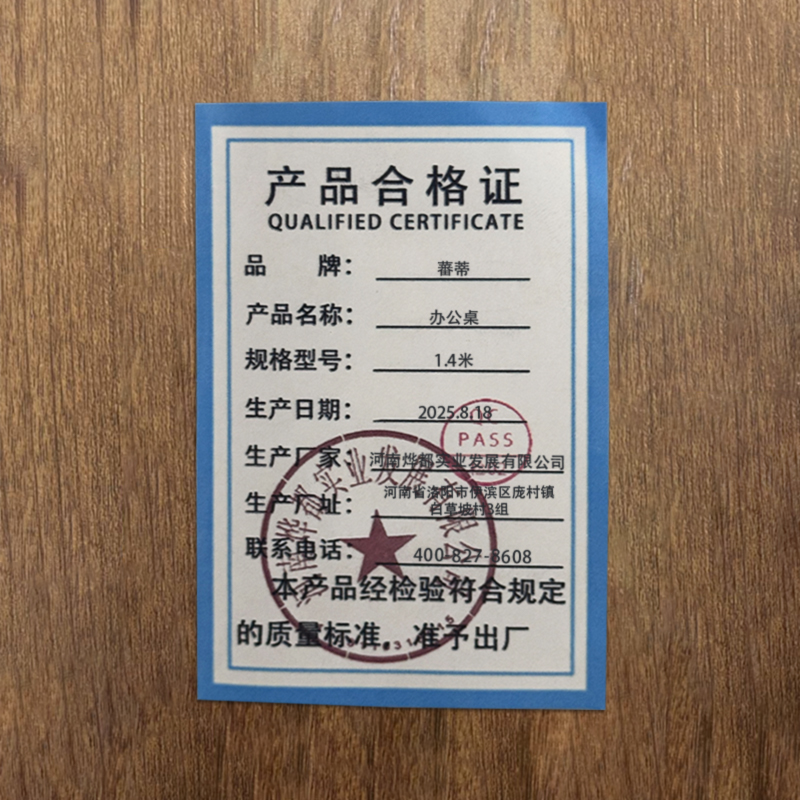 产品合格证
QUALIFIED CERTIFICATE
品 牌： 蕃蒂
产品名称： 办公桌
规格型号： 1.4米
生产日期： 2025.8.18
PASS
生产厂家： 河南烨都实业发展有限公司
生产厂址： 河南省洛阳市伊滨区庞村镇
白草坡村3组
联系电话： 400-827-8608
本产品经检验符合规定
的质量标准，准予出厂
河南烨都实业发展有限公司